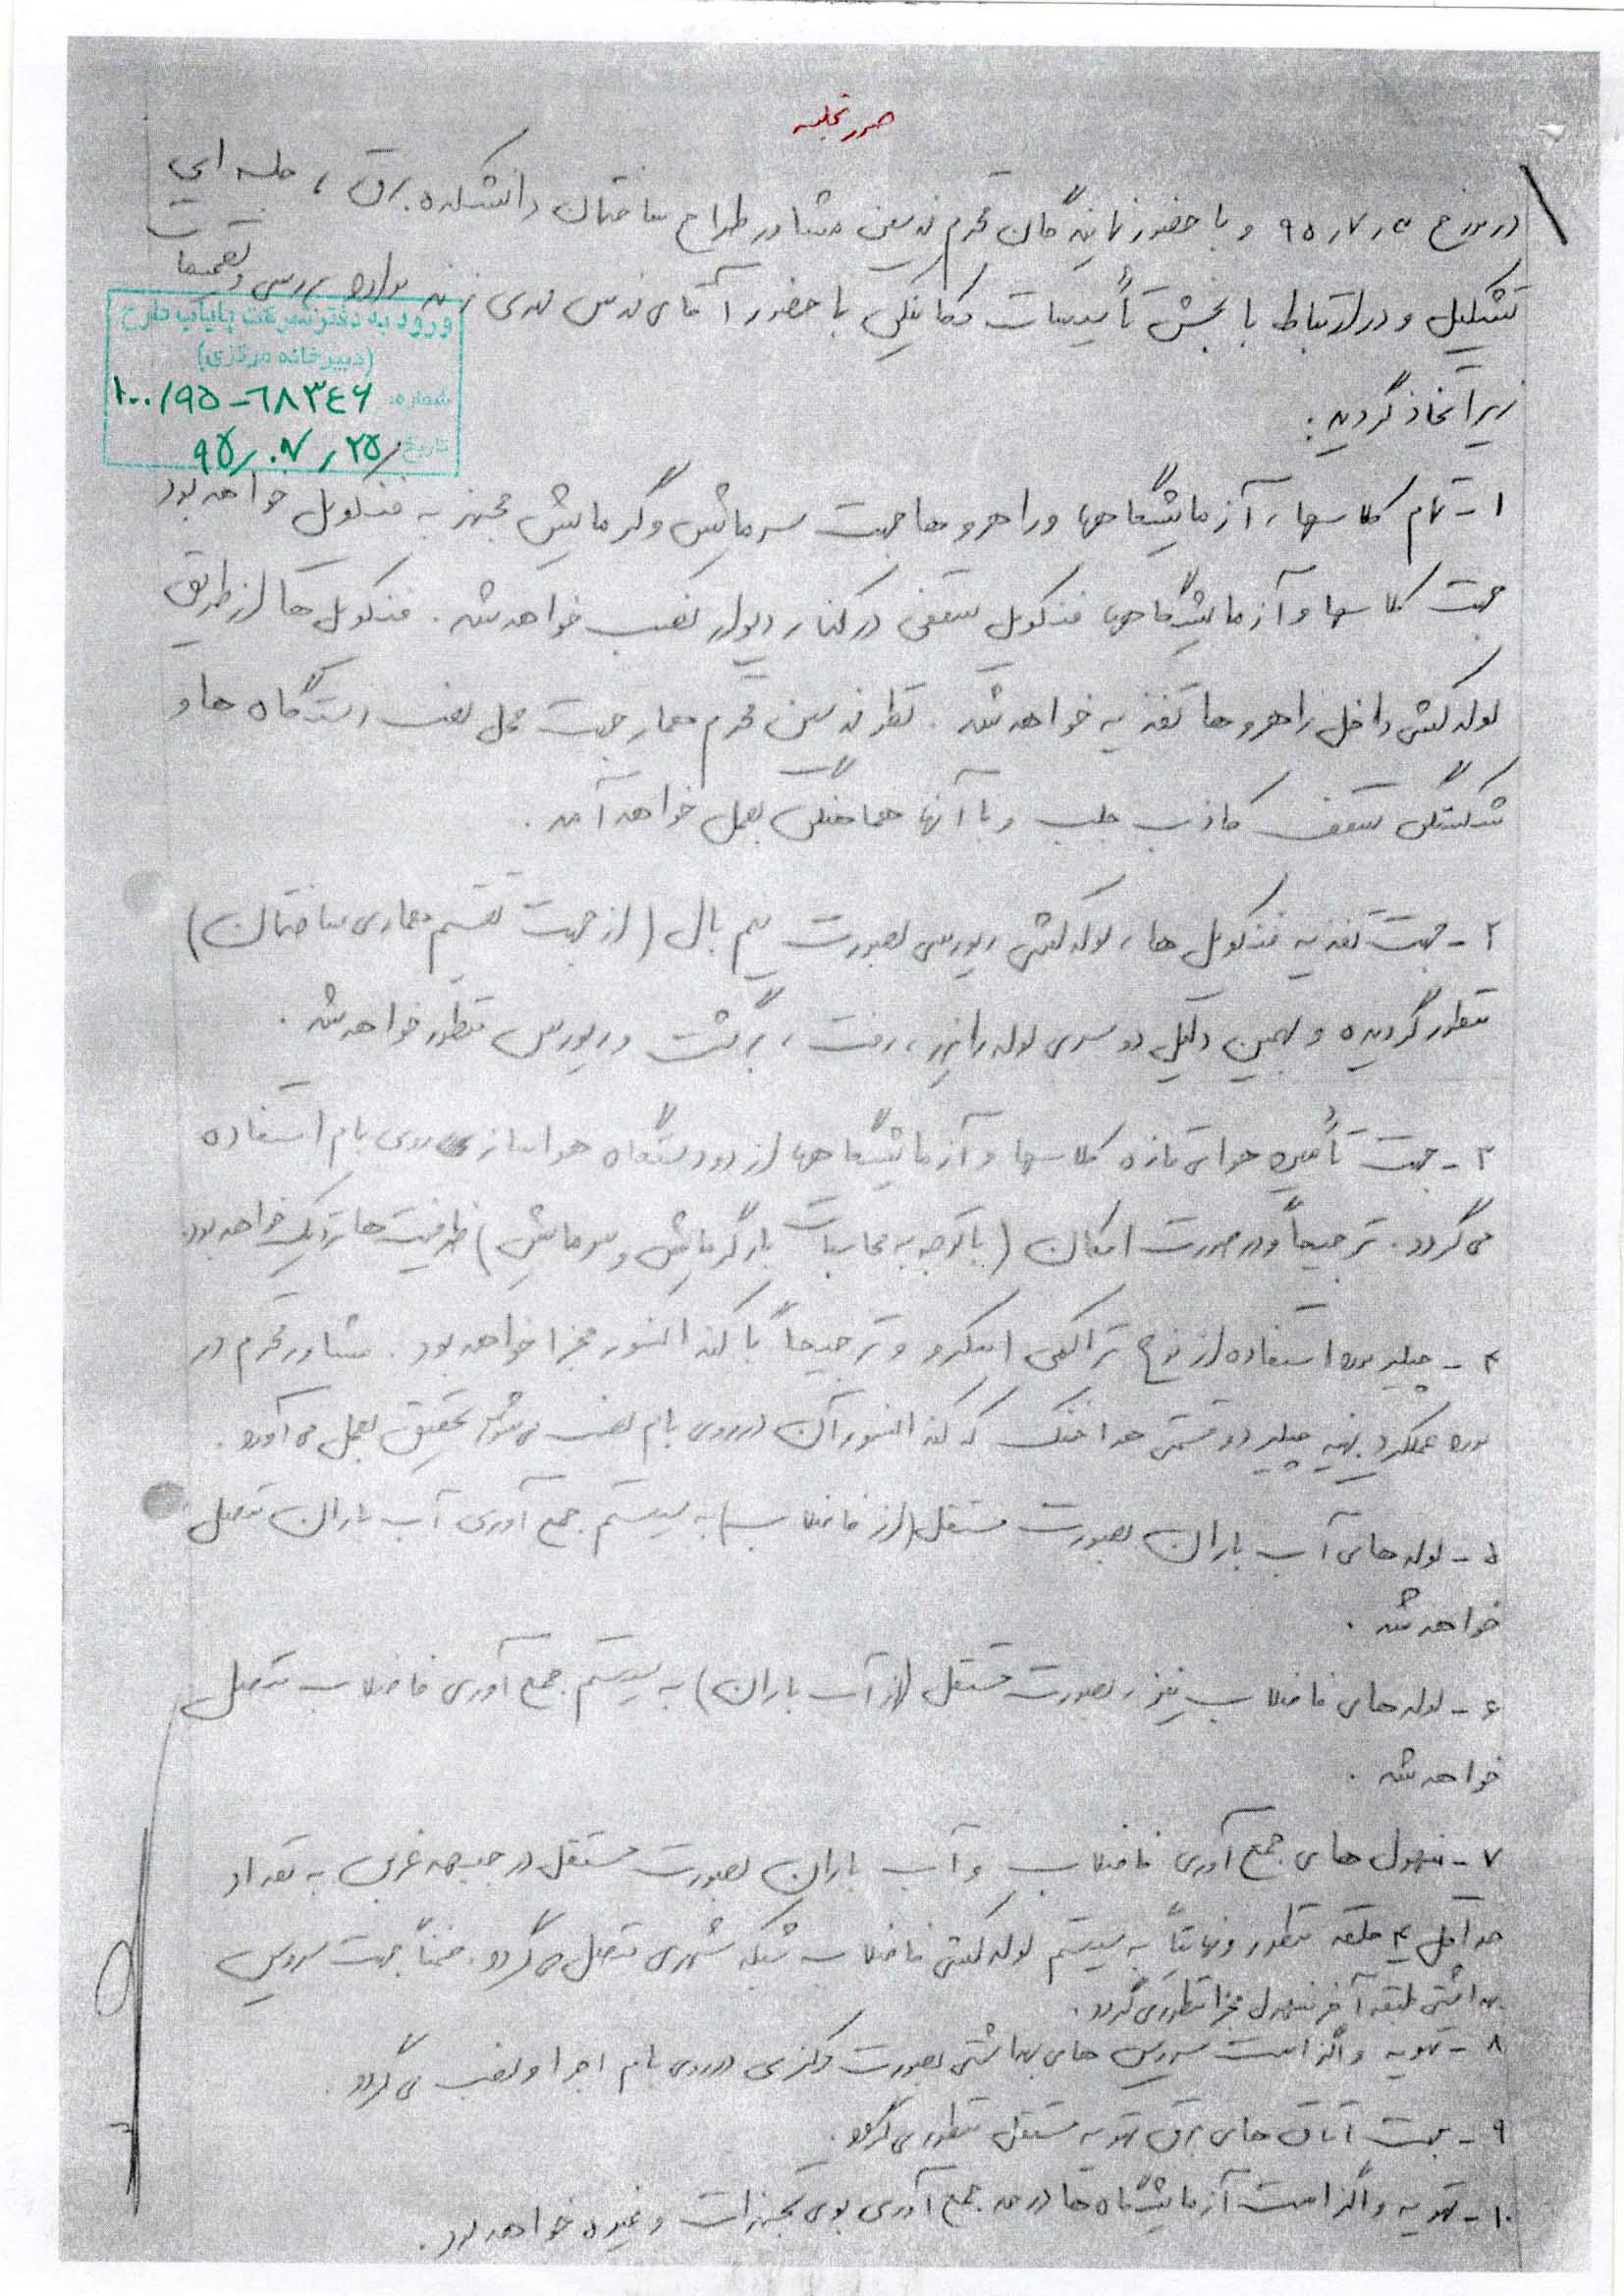 صورتجلسه
در مورخ ۹۵٫۷٫۵ و با حضور نمایندگان محترم مهندسین مشاور طراح ساختمان دانشکده برق ، جلسه ای
تشکیل و در ارتباط با بخش تأسیسات مکانیکی با حضور آقای مهندس موارد بررسی و تصمیمات
زیر اتخاذ گردید :
ورود به دفتر شرکت پایاب طرح
(دبیرخانه مرکزی)
شماره: ۱۰۰/۹۵-۶۸۳۴۶
تاریخ: ۹۵٫۰۷٫۲۵
۱- تمام کلاسها ، آزمایشگاهها و راهروها جهت سرمایش و گرمایش مجهز به فنکویل خواهد بود
جهت کلاسها و آزمایشگاهها فنکویل سقفی در کنار دیوار نصب خواهد شد . فنکویل ها از طریق
لوله کشی داخل راهروها تغذیه خواهد شد . نظر مهندسین محترم معمار جهت محل نصب دستگاه ها و
شکستگی سقف کاذب جلب و با آنها هماهنگی بعمل خواهد آمد .
۲- جهت تغذیه فنکویل ها ، لوله کشی ریورس بصورت نیم بال (از جهت تقسیم معماری ساختمان)
منظور گردیده و بهمین دلیل دو سری لوله رایزر ، رفت ، برگشت و ریورس منظور خواهد شد .
۳- جهت تأمین هوای تازه کلاسها و آزمایشگاهها از دو دستگاه هواساز روی بام استفاده
می گردد . ترجیحاً و در صورت امکان (با توجه به محاسبات بار گرمایش و سرمایش) ظرفیت ها نزدیک خواهد بود.
۴- چیلر مورد استفاده از نوع تراکمی اسکرو و ترجیحاً با کندانسور مجزا خواهد بود . مشاور محترم در
مورد عملکرد بهینه چیلر دو قسمتی هوا خنک که کندانسور آن در روی بام نصب می شود تحقیق بعمل می آورد .
۵- لوله های آب باران بصورت مستقل (از فاضلاب) به سیستم جمع آوری آب باران متصل
خواهد شد .
۶- لوله های فاضلاب نیز ، بصورت مستقل (از آب باران) به سیستم جمع آوری فاضلاب متصل
خواهد شد .
۷- منهول های جمع آوری فاضلاب و آب باران بصورت مستقل در جبهه غربی به تعداد
حداقل ۴ حلقه منظور و نهایتاً به سیستم لوله کشی فاضلاب شبکه شهری متصل می گردد . ضمناً جهت سرویس
بهداشتی طبقه آخر منهول مجزا منظور می گردد .
۸- تهویه و اگزاست سرویس های بهداشتی بصورت مرکزی در روی بام اجرا و نصب می گردد .
۹- جهت اتاق های برق تهویه مستقل منظور می گردد .
۱۰- تهویه و اگزاست آزمایشگاه ها در حد جمع آوری بوی تجهیزات و غیره خواهد بود .